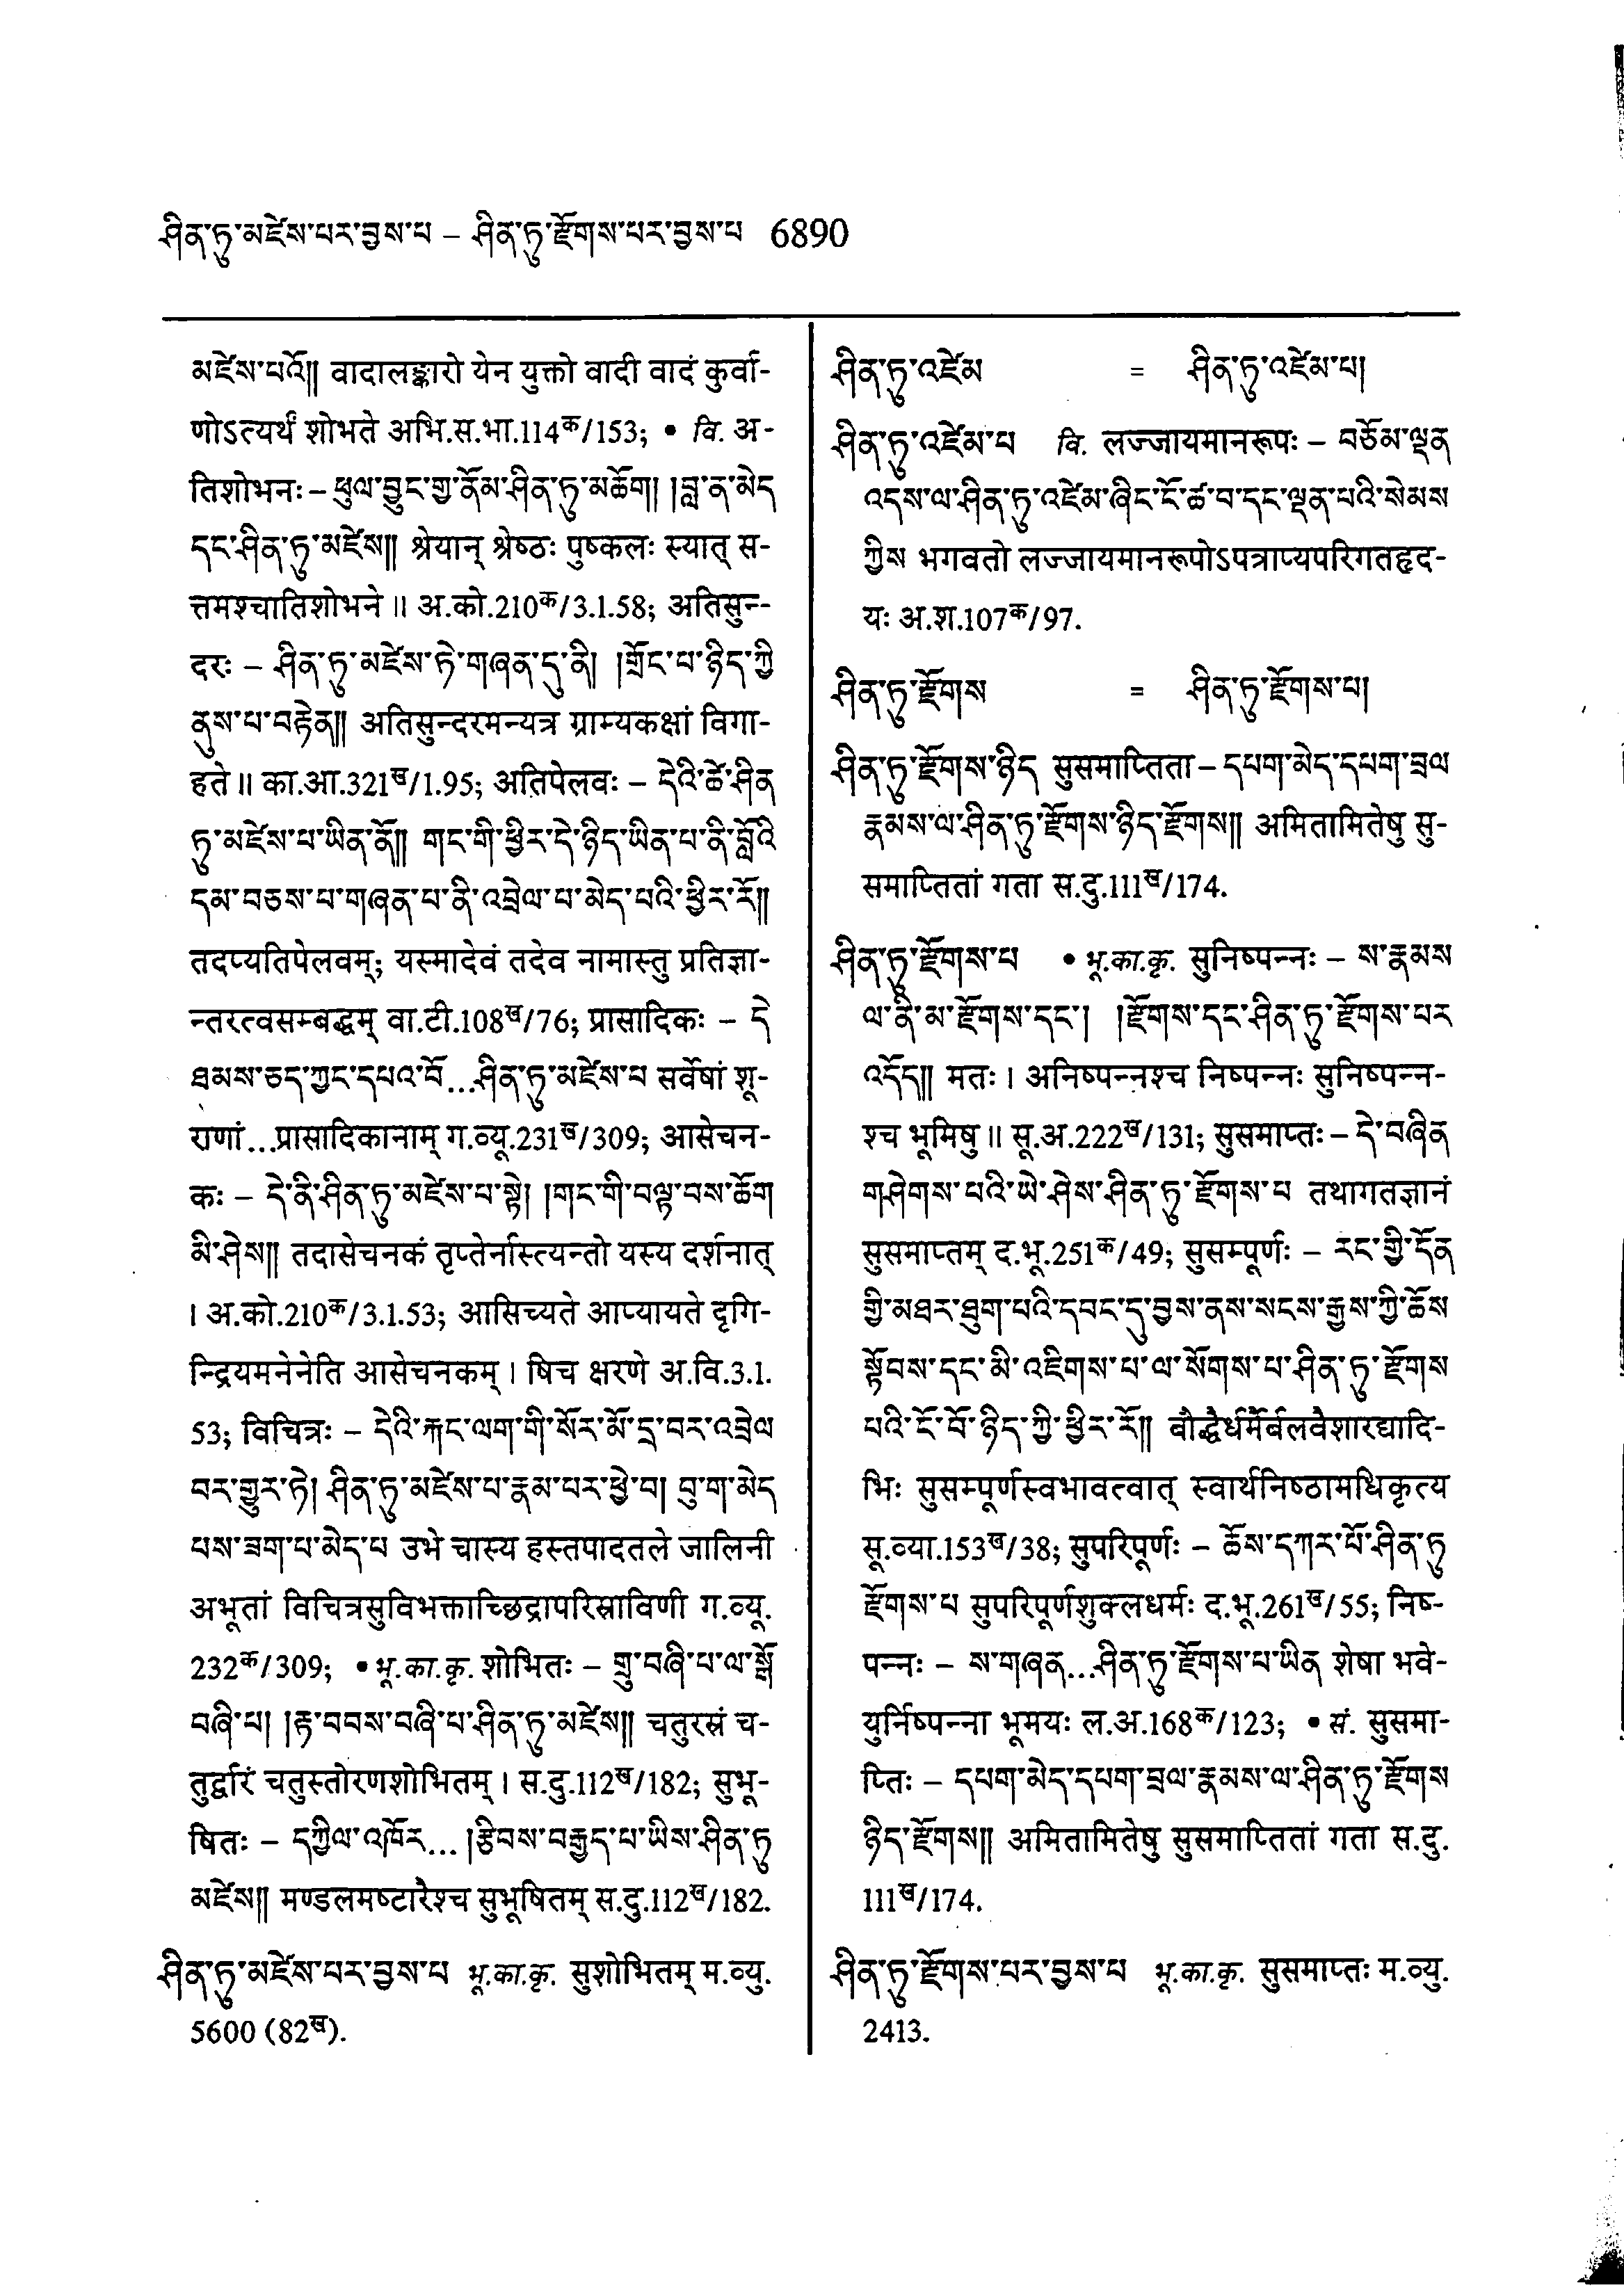 ཤིན་ཏུ་མཛེས་པར་བྱས་པ – ཤིན་ཏུ་རྫོགས་པར་བྱས་པ 6890
མཛེས་པའོ།། वादालङ्कारो येन युक्तो वादी वादं कुर्वा-
णोऽत्यर्थं शोभते अभि.स.भा.114क/153; • वि. अ-
तिशोभनः – ཕུལ་བྱུང་གྱ་ནོམ་ཤིན་ཏུ་མཆོག། །བླ་ན་མེད
དང་ཤིན་ཏུ་མཛེས།། श्रेयान् श्रेष्ठः पुष्कलः स्यात् स-
त्तमश्चातिशोभने ॥ अ.को.210क/3.1.58; अतिसुन्-
दरः – ཤིན་ཏུ་མཛེས་ཏེ་གཞན་དུ་ནི། །གྲོང་པ་ཉིད་ཀྱི
ནུས་པ་བརྟེན།། अतिसुन्दरमन्यत्र ग्राम्यकक्षां विगा-
हते ॥ का.आ.321ख/1.95; अतिपेलवः – དེའི་ཚེ་ཤིན
ཏུ་མཛེས་པ་ཡིན་ནོ།། གང་གི་ཕྱིར་དེ་ཉིད་ཡིན་པ་ནི་བློའི
དམ་བཅས་པ་གཞན་པ་ནི་འབྲེལ་པ་མེད་པའི་ཕྱིར་རོ།།
तदप्यतिपेलवम्; यस्मादेवं तदेव नामास्तु प्रतिज्ञा-
न्तरत्वसम्बद्धम् वा.टी.108ख/76; प्रासादिकः – དེ
ཐམས་ཅད་ཀྱང་དཔའ་བོ...ཤིན་ཏུ་མཛེས་པ सर्वेषां शू-
राणां...प्रासादिकानाम् ग.व्यू.231ख/309; आसेचन-
कः – དེ་ནི་ཤིན་ཏུ་མཛེས་པ་སྟེ། །གང་གི་བལྟ་བས་ཆོག
མི་ཤེས།། तदासेचनकं तृप्तेर्नास्त्यन्तो यस्य दर्शनात्
। अ.को.210क/3.1.53; आसिच्यते आप्यायते दृगि-
न्द्रियमनेनेति आसेचनकम् । षिच क्षरणे अ.वि.3.1.
53; विचित्रः – དེའི་རྐང་ལག་གི་སོར་མོ་དྲ་བར་འབྲེལ
བར་གྱུར་ཏེ། ཤིན་ཏུ་མཛེས་པ་རྣམ་པར་ཕྱེ་བ། བུ་ག་མེད
པས་ཟག་པ་མེད་པ उभे चास्य हस्तपादतले जालिनी
अभूतां विचित्रसुविभक्ताच्छिद्रापरिस्राविणी ग.व्यू.
232क/309; • भू.का.कृ. शोभितः – གྲུ་བཞི་པ་ལ་སྒོ
བཞི་པ། །རྟ་བབས་བཞི་པ་ཤིན་ཏུ་མཛེས།། चतुरस्रं च-
तुर्द्वारं चतुस्तोरणशोभितम् । स.दु.112ख/182; सुभू-
षितः – དཀྱིལ་འཁོར... །རྩིབས་བརྒྱད་པ་ཡིས་ཤིན་ཏུ
མཛེས།། मण्डलमष्टारैश्च सुभूषितम् स.दु.112ख/182.
ཤིན་ཏུ་མཛེས་པར་བྱས་པ भू.का.कृ. सुशोभितम् म.व्यु.
5600 (82ख).
ཤིན་ཏུ་འཛེམ = ཤིན་ཏུ་འཛེམ་པ།
ཤིན་ཏུ་འཛེམ་པ वि. लज्जायमानरूपः – བཅོམ་ལྡན
འདས་ལ་ཤིན་ཏུ་འཛེམ་ཞིང་ངོ་ཚ་བ་དང་ལྡན་པའི་སེམས
ཀྱིས भगवतो लज्जायमानरूपोऽपत्राप्यपरिगतहृद-
यः अ.श.107क/97.
ཤིན་ཏུ་རྫོགས = ཤིན་ཏུ་རྫོགས་པ།
ཤིན་ཏུ་རྫོགས་ཉིད सुसमाप्तिता – དཔག་མེད་དཔག་བྲལ
རྣམས་ལ་ཤིན་ཏུ་རྫོགས་ཉིད་རྫོགས།། अमितामितेषु सु-
समाप्तितां गता स.दु.111ख/174.
ཤིན་ཏུ་རྫོགས་པ • भू.का.कृ. सुनिष्पन्नः – ས་རྣམས
ལ་ནི་མ་རྫོགས་དང་། །རྫོགས་དང་ཤིན་ཏུ་རྫོགས་པར
འདོད།། मतः । अनिष्पन्नश्च निष्पन्नः सुनिष्पन्न-
श्च भूमिषु ॥ सू.अ.222ख/131; सुसमाप्तः – དེ་བཞིན
གཤེགས་པའི་ཡེ་ཤེས་ཤིན་ཏུ་རྫོགས་པ तथागतज्ञानं
सुसमाप्तम् द.भू.251क/49; सुसम्पूर्णः – རང་གྱི་དོན
གྱི་མཐར་ཐུག་པའི་དབང་དུ་བྱས་ནས་སངས་རྒྱས་ཀྱི་ཆོས
སྟོབས་དང་མི་འཇིགས་པ་ལ་སོགས་པ་ཤིན་ཏུ་རྫོགས
པའི་ངོ་བོ་ཉིད་ཀྱི་ཕྱིར་རོ།། बौद्धैर्धर्मैर्बलवैशारद्यादि-
भिः सुसम्पूर्णस्वभावत्वात् स्वार्थनिष्ठामधिकृत्य
सू.व्या.153ख/38; सुपरिपूर्णः – ཆོས་དཀར་པོ་ཤིན་ཏུ
རྫོགས་པ सुपरिपूर्णशुक्लधर्मः द.भू.261ख/55; निष्-
पन्नः – ས་གཞན...ཤིན་ཏུ་རྫོགས་པ་ཡིན शेषा भवे-
युर्निष्पन्ना भूमयः ल.अ.168क/123; • सं. सुसमा-
प्तिः – དཔག་མེད་དཔག་བྲལ་རྣམས་ལ་ཤིན་ཏུ་རྫོགས
ཉིད་རྫོགས།། अमितामितेषु सुसमाप्तितां गता स.दु.
111ख/174.
ཤིན་ཏུ་རྫོགས་པར་བྱས་པ भू.का.कृ. सुसमाप्तः म.व्यु.
2413.